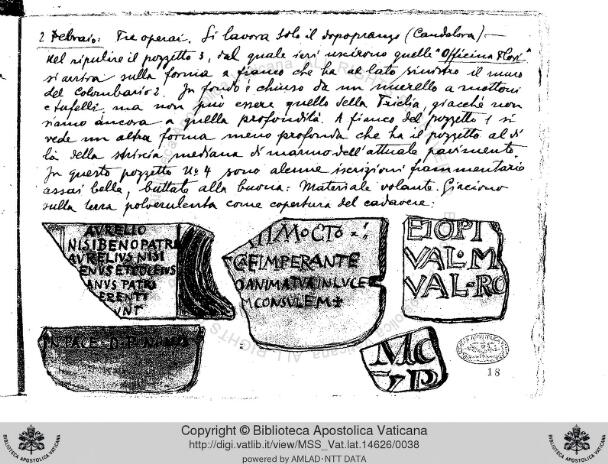 2 Febraio: Tre operai. Si lavora solo il dopopranzo (Candelora).—
Nel ripulire il pozzetto 3, dal quale ieri uscirono quelle "Officina Flori"
si arriva sulla forma a fianco che ha al lato sinistro il muro
del Colombario 2. In fondo è chiuso da un murello a mattoni
e tufelli, ma non può essere quello della Triclia, giacchè non
siamo ancora a quella profondità. A fianco del pozzetto 1 si
vede un altra forma meno profonda che ha il pozzetto al di
là della striscia mediana di marmo dell'attuale pavimento.
In questo pozzetto No 4 sono alcune iscrizioni frammentarie
assai belle, buttate alla buona: Materiale volante. Giacciono
sulla terra polverulenta come copertura del cadavere:
AVRELIO
NISIBENO PATRI
AVRELIUS NISI
ENUS ET
ANVS PATRI
ERENTI
VNT
IMOCTO
GEIMPERANTE
OANIMATVAINLVCE
MCONSVLEM
EIOPI
VAL·M
VAL·RO
IN PACE
MC
18
Copyright © Biblioteca Apostolica Vaticana
http://digi.vatlib.it/view/MSS_Vat.lat.14626/0038
powered by AMLAD·NTT DATA
BIBLIOTECA APOSTOLICA VATICANA
BIBLIOTECA APOSTOLICA VATICANA